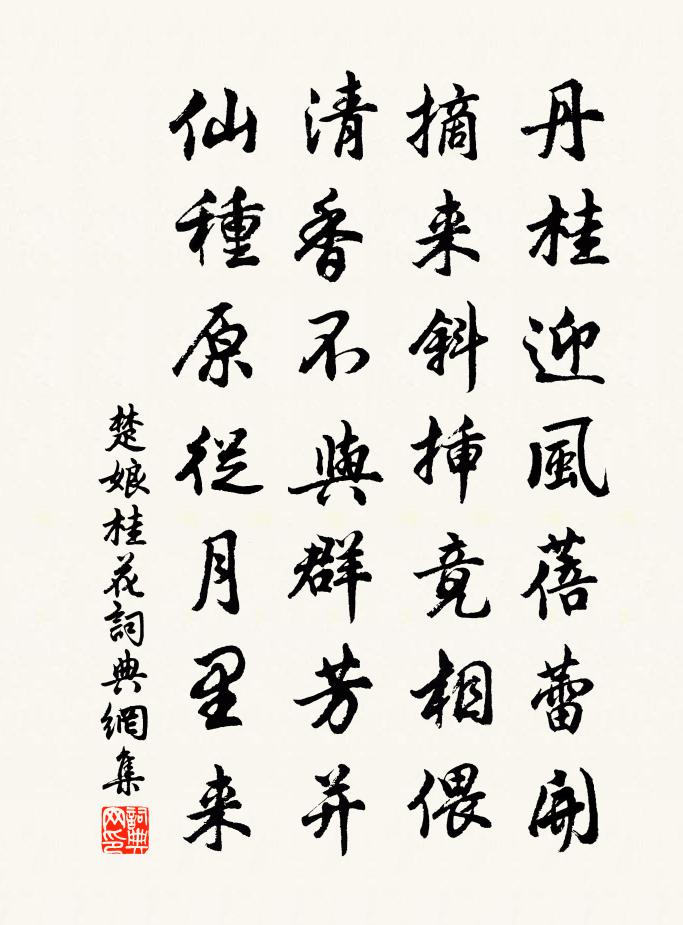 丹桂迎風蓓蕾開
摘来斜插竟相偎
清香不與群芳并
仙種原從月里来
楚娘桂花詞典網集
詞典
网印